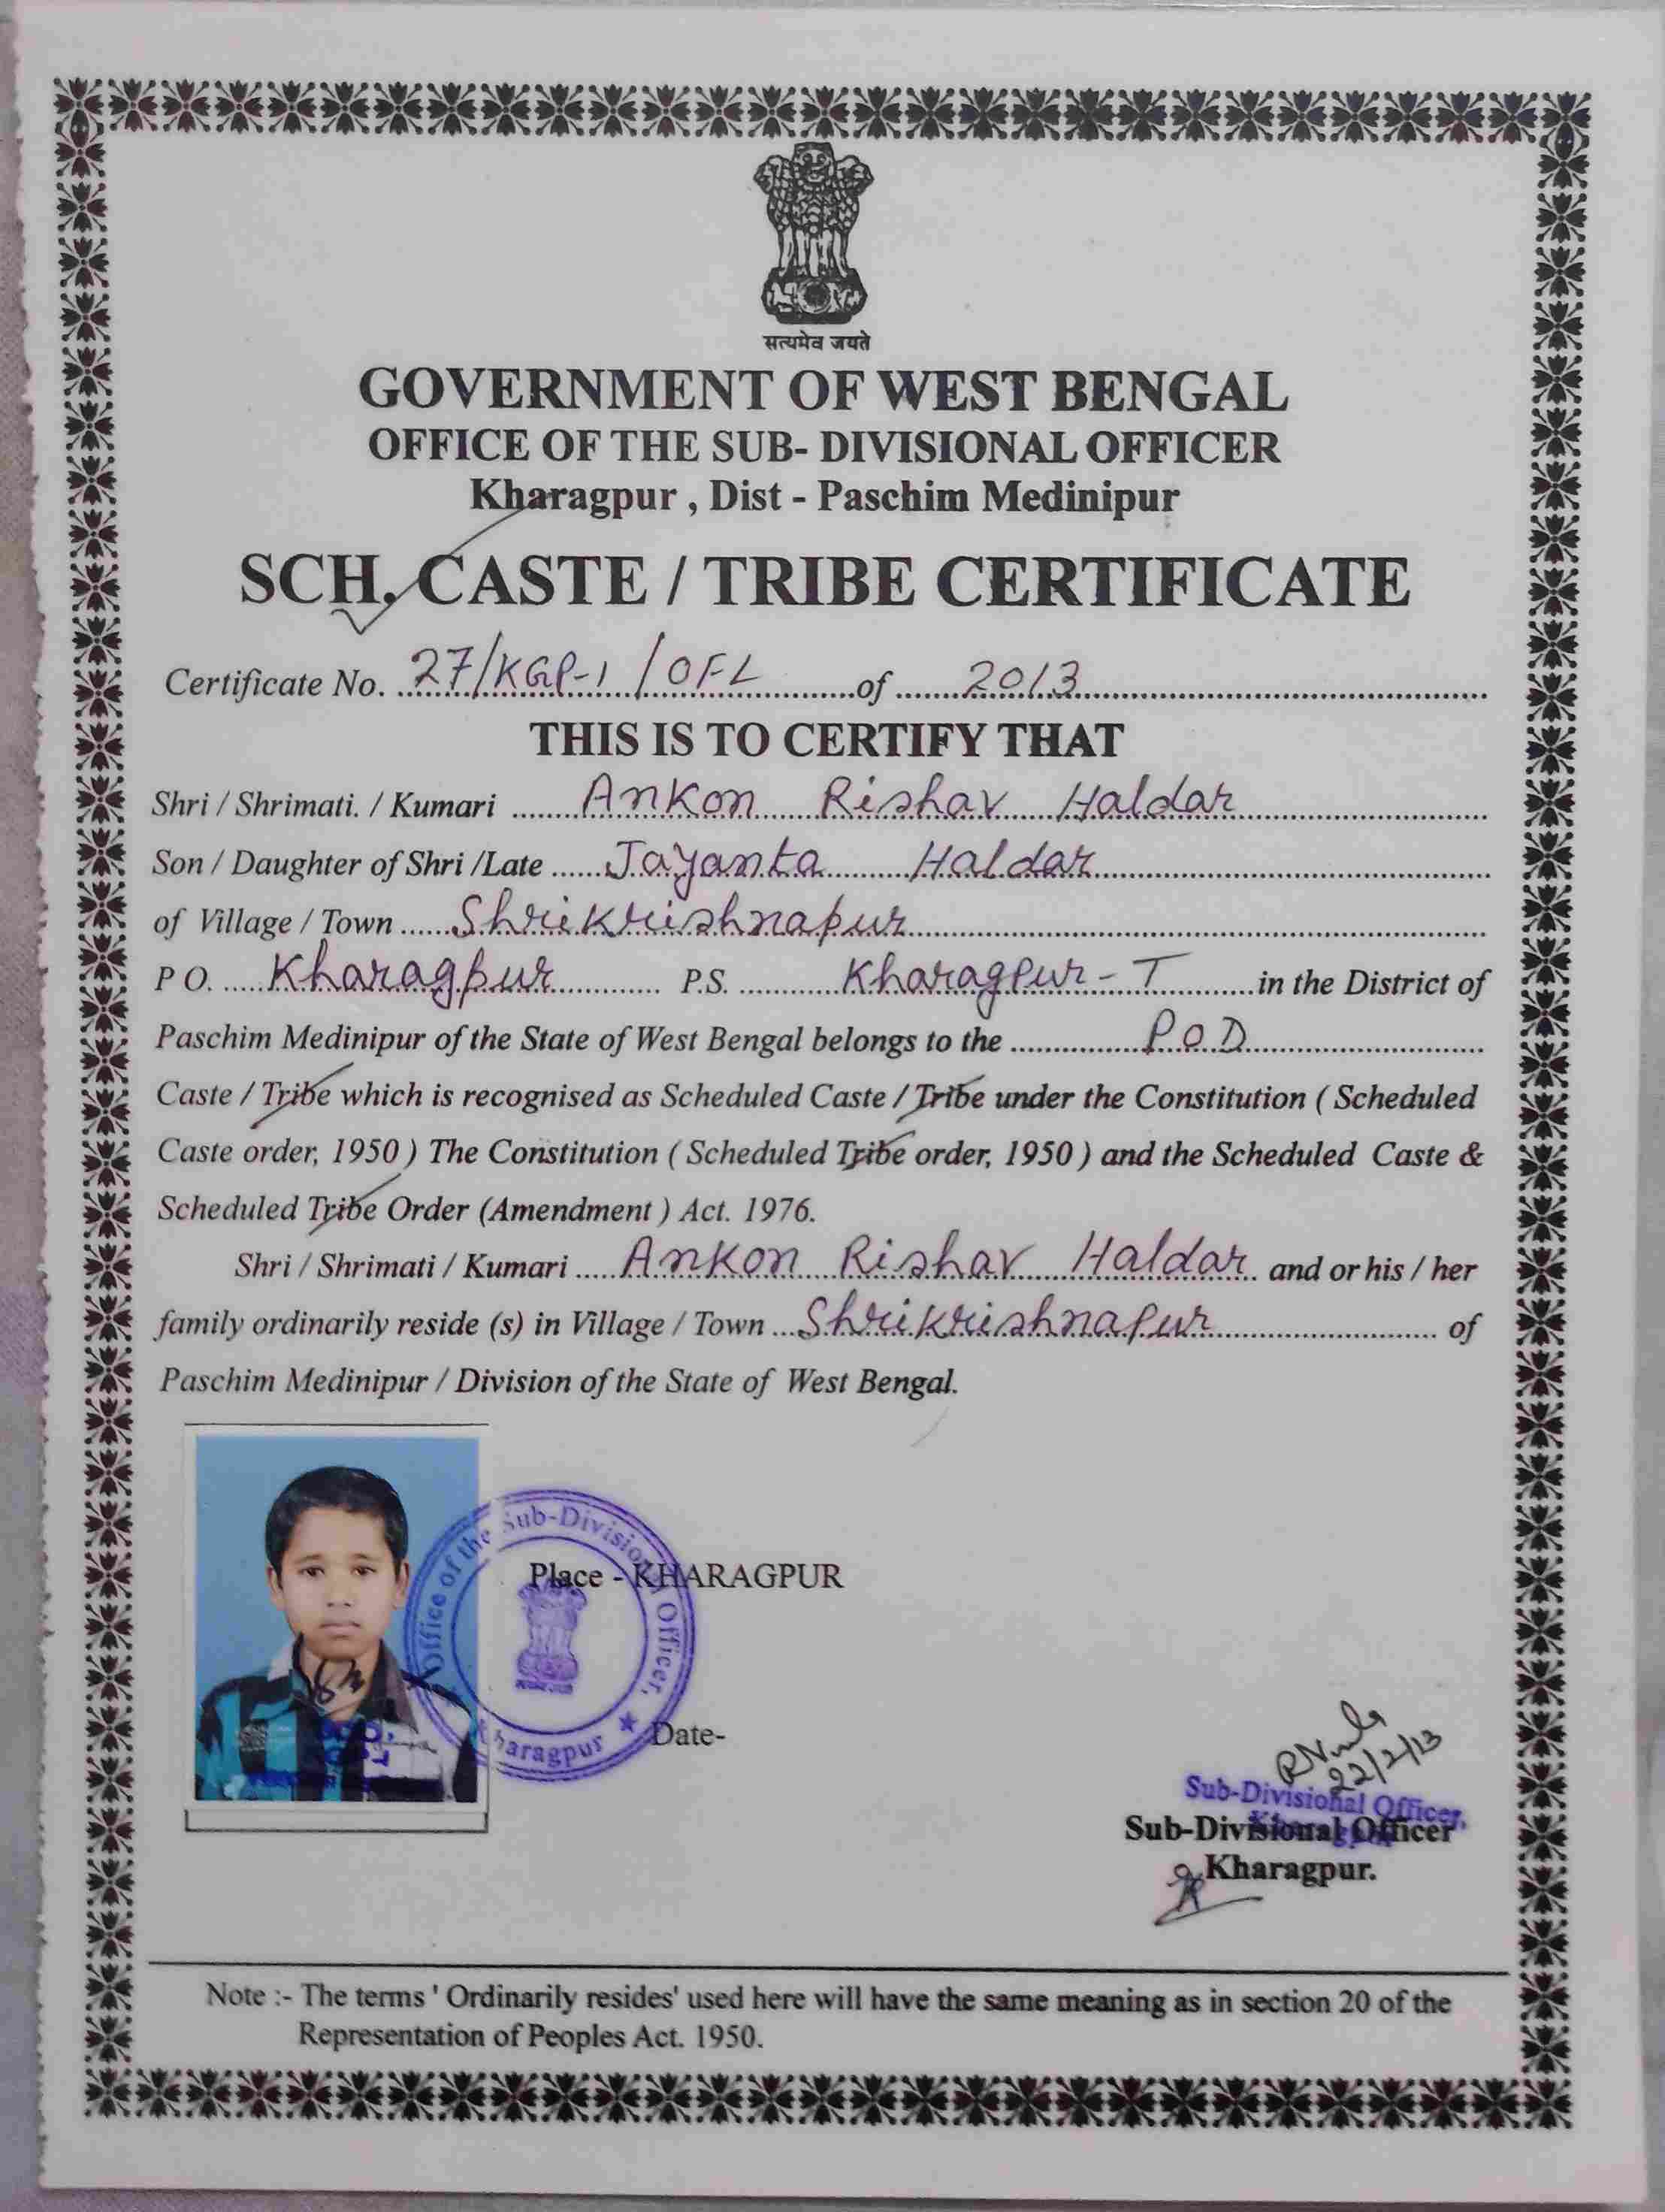 सत्यमेव जयते
GOVERNMENT OF WEST BENGAL
OFFICE OF THE SUB- DIVISIONAL OFFICER
Kharagpur , Dist - Paschim Medinipur
SCH. CASTE / TRIBE CERTIFICATE
Certificate No. 27/KGP-1 / OFL of 2013
THIS IS TO CERTIFY THAT
Shri / Shrimati. / Kumari Ankon Rishav Haldar
Son / Daughter of Shri /Late Jayanta Haldar
of Village / Town Shrikrishnapur
P O. Kharagpur P.S. Kharagpur - T in the District of
Paschim Medinipur of the State of West Bengal belongs to the POD
Caste / Tribe which is recognised as Scheduled Caste / Tribe under the Constitution ( Scheduled
Caste order, 1950 ) The Constitution ( Scheduled Tribe order, 1950 ) and the Scheduled Caste &
Scheduled Tribe Order (Amendment ) Act. 1976.
Shri / Shrimati / Kumari Ankon Rishav Haldar and or his / her
family ordinarily reside (s) in Village / Town Shrikrishnapur of
Paschim Medinipur / Division of the State of West Bengal.
Office of the Sub-Divisional Officer,
Kharagpur
Place - KHARAGPUR
Date-
22/2/13
Sub-Divisional Officer,
Sub-Divisional Officer
Kharagpur.
Note :- The terms ' Ordinarily resides' used here will have the same meaning as in section 20 of the
Representation of Peoples Act. 1950.